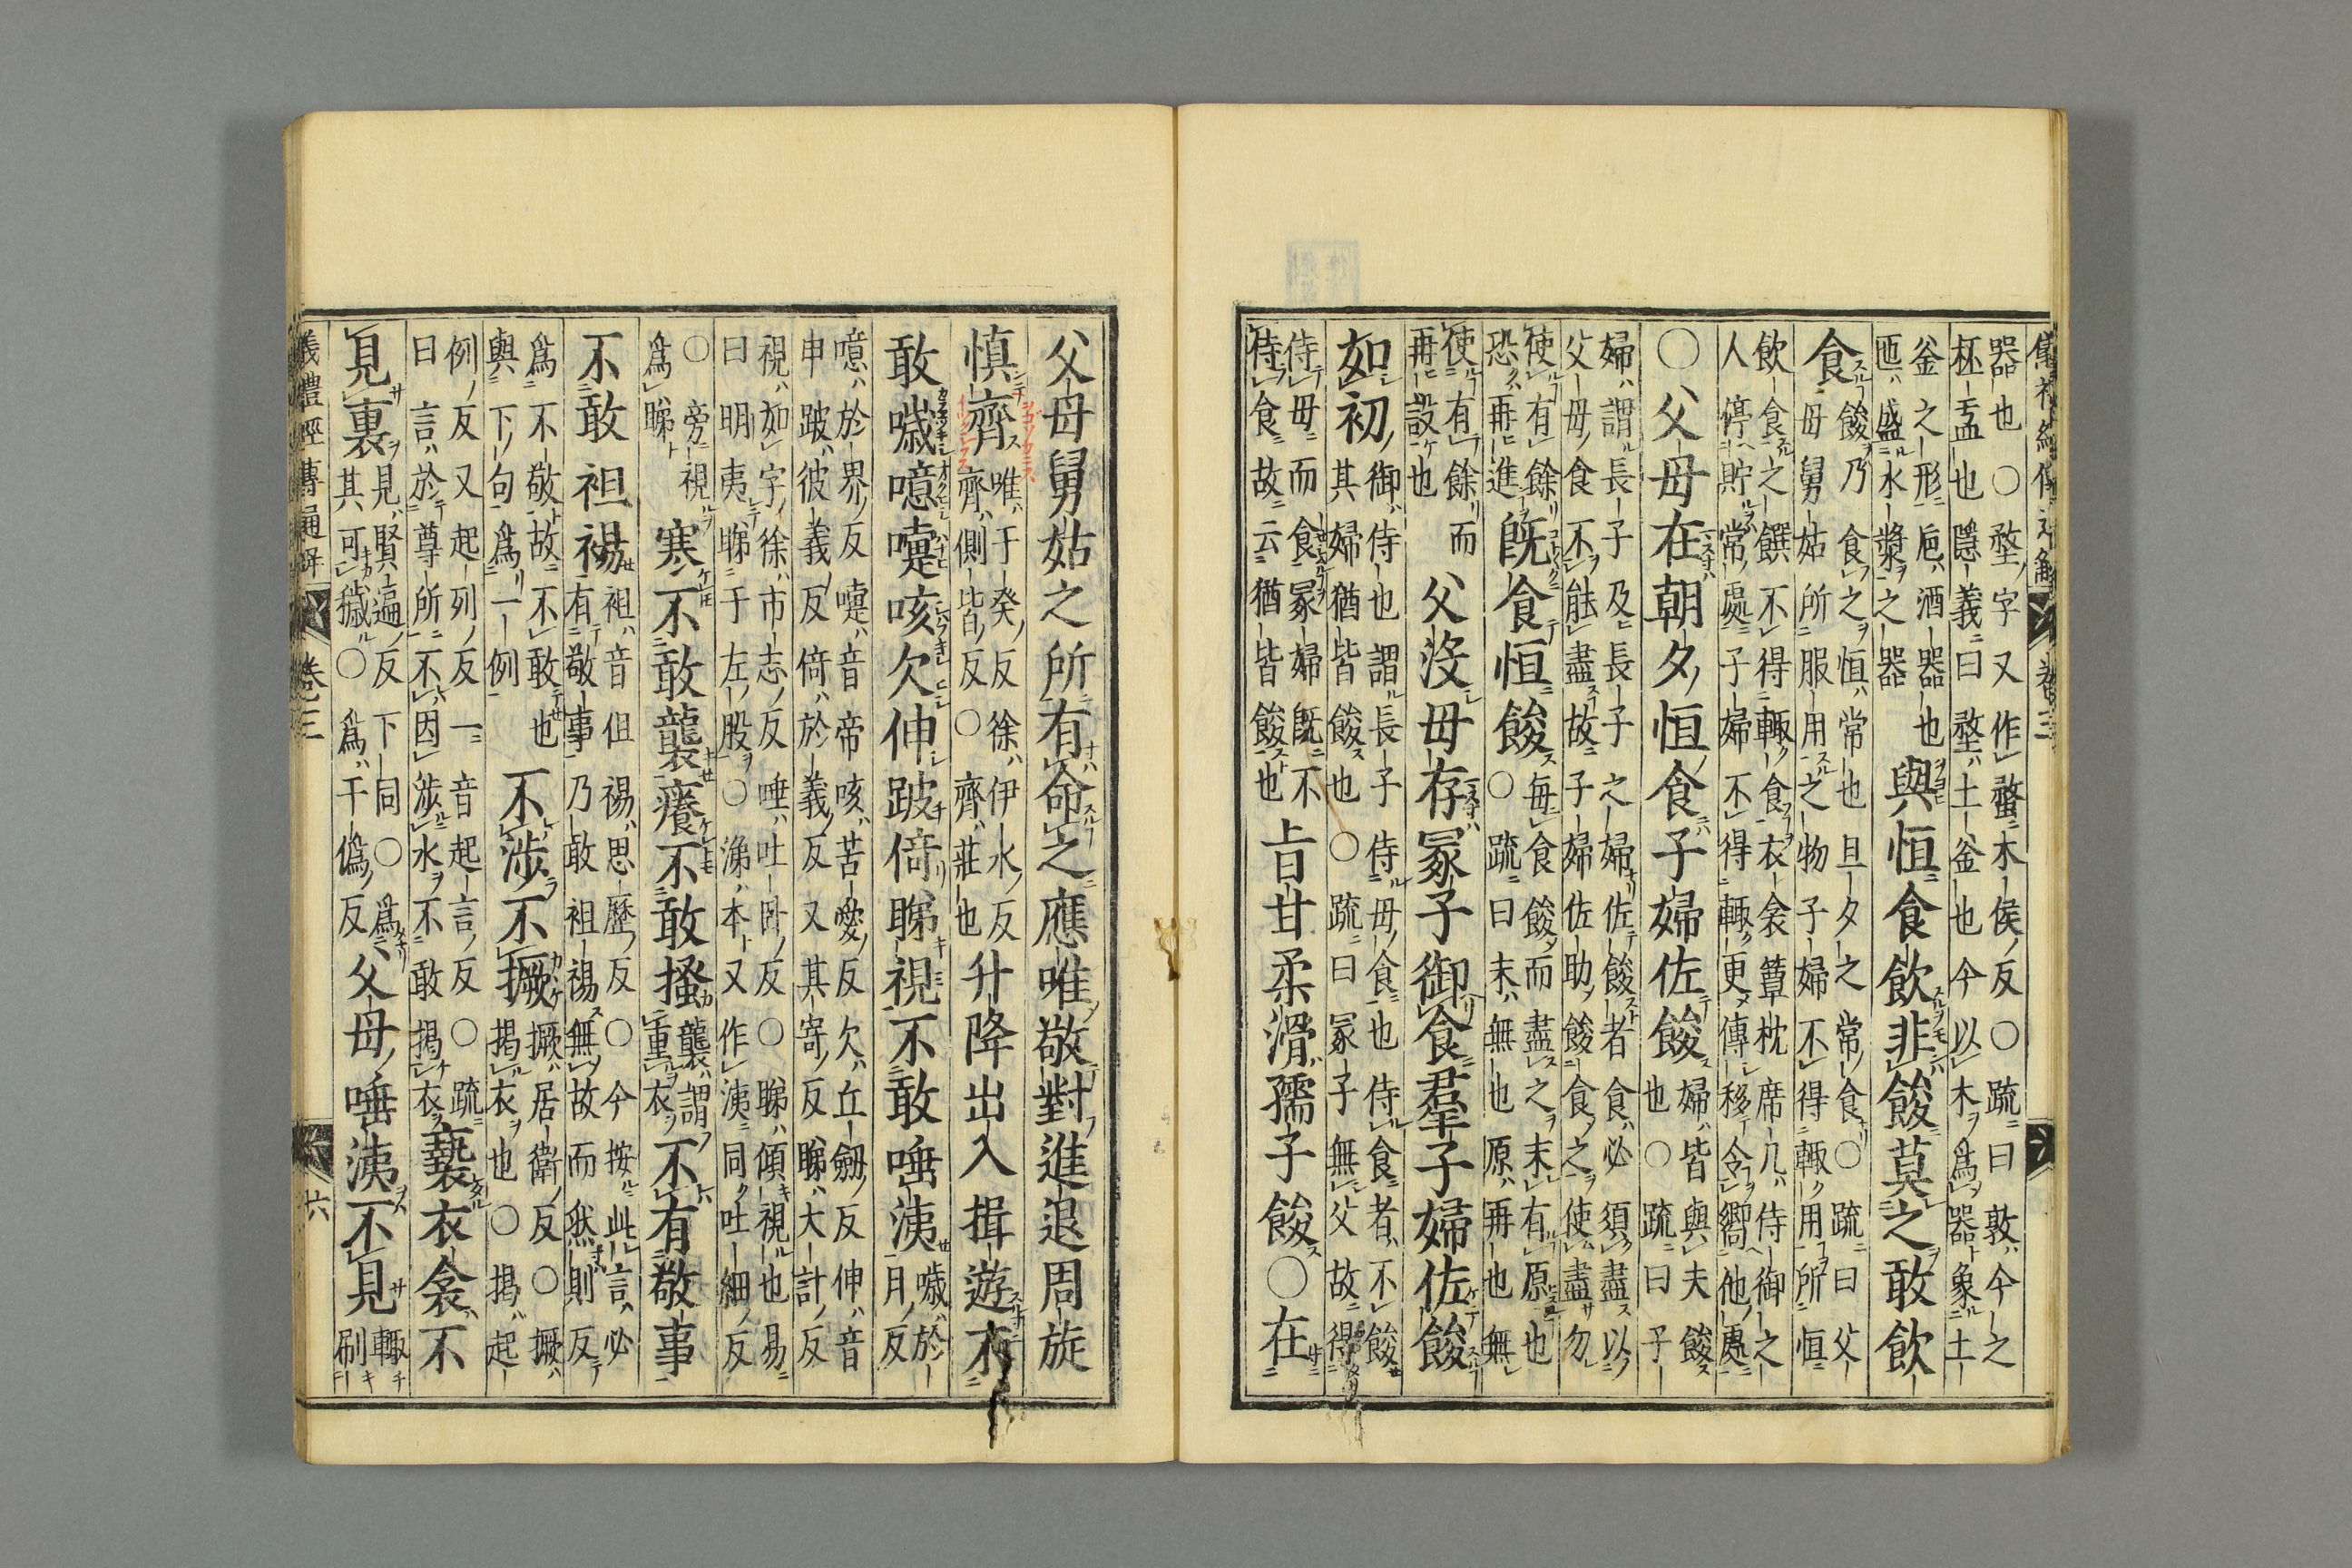 儀禮經傳通解 卷三
器也〇堥字又作鍪木侯反〇疏曰敦今之
杯盂也隱義曰堥土釜也今以木爲器象土
釜之形巵酒器也
匜盛水漿之器
與恒食飲非餕莫之敢飲
食
餕乃食之恒常也旦夕之常食〇疏曰父
母舅姑所服用之物子婦不得輒用所恒
飲食之饌不得輒食衣衾簟枕席几侍御之
人停貯常處子婦不得輒更傳移令嚮他處
〇父母在朝夕恒食子婦佐餕
婦皆與夫餕
也〇疏曰子
婦謂長子及長子之婦佐餕者食必須盡以
父母食不能盡故子婦佐助餕食之使盡勿
使有餘
恐再進
既食恒餕
毎食餕而盡之末有原也
〇疏曰末無也原再也無
使有餘而
再設也
父没母存冢子御食羣子婦佐餕
如初
御侍也謂長子侍母食也侍食者不餕
其婦猶皆餕也〇疏曰冢子無父故得
侍母而食冢婦既不
侍食故云猶皆餕也
旨甘柔滑孺子餕〇在
父母舅姑之所有命之應唯敬對進退周旋
慎齊
唯于癸反徐伊水反
齊側皆反〇齊莊也
升降出入揖遊不
敢噦噫嚏咳欠伸跛倚睇視不敢唾洟
噦於
月反
噫於界反嚏音帝咳苦愛反欠丘劒反伸音
申跛彼義反倚於義反又其寄反睇大計反
視如字徐市志反唾吐臥反〇睇傾視也易
曰明夷睇于左股〇涕本又作洟同吐細反
〇旁視
爲睇
寒不敢襲癢不敢搔
襲謂
重衣
不有敬事
不敢袒裼
袒音但裼思歷反〇今按此言必
有敬事乃敢袒裼無故而然則反
爲不敬故不敢也
與下句爲一例
不涉不撅
撅居衛反〇撅
揭衣也〇揭起
例反又起列反一音起言反〇疏
曰言於尊所不因涉水不敢揭衣
褻衣衾不
見裏
見賢遍反下同〇爲
其可穢〇爲于僞反
父母唾洟不見
輒
刷
儀禮經傳通解 卷三 六